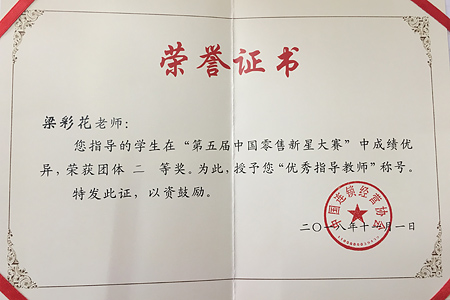 荣誉证书
梁彩花老师：
您指导的学生在“第五届中国零售新星大赛”中成绩优
异，荣获团体 二 等奖。为此，授予您“优秀指导教师”称号。
特发此证，以资鼓励。
中国连锁经营协会
二〇一八年十一月一日